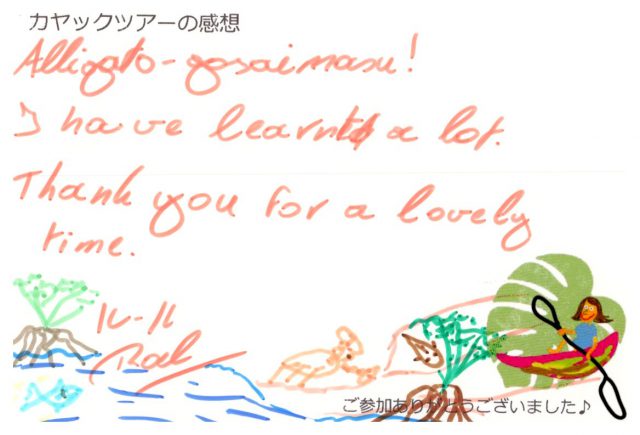 カヤックツアーの感想
Alligato-gosaimasu!
I have learnt a lot.
Thank you for a lovely
time.
ル-ル
ご参加ありがとうございました♪